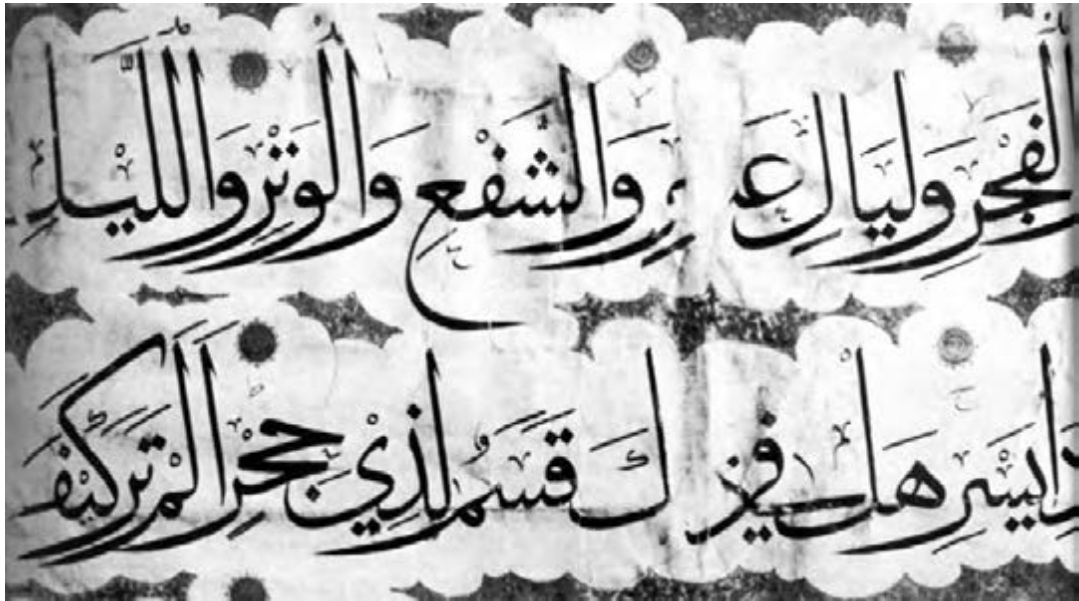 الْفَجْرِ وَلَيَالٍ عَشْرٍ وَالشَّفْعِ وَالْوَتْرِ وَاللَّيْلِ
ذَا يَسْرِ هَلْ فِي ذلِكَ قَسَمٌ لِذِيْ حِجْرٍ اَلَمْ تَرَ كَيْفَ